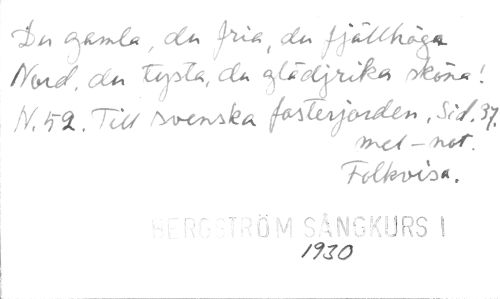 Du gamla, du fria, du fjällhöga
Nord, du tysta, du glädjrika sköna!
N. 52. Till svenska fosterjorden, Sid. 37.
mel-not.
Folkvisa.
BERGSTRÖM SÅNGKURS I
1930